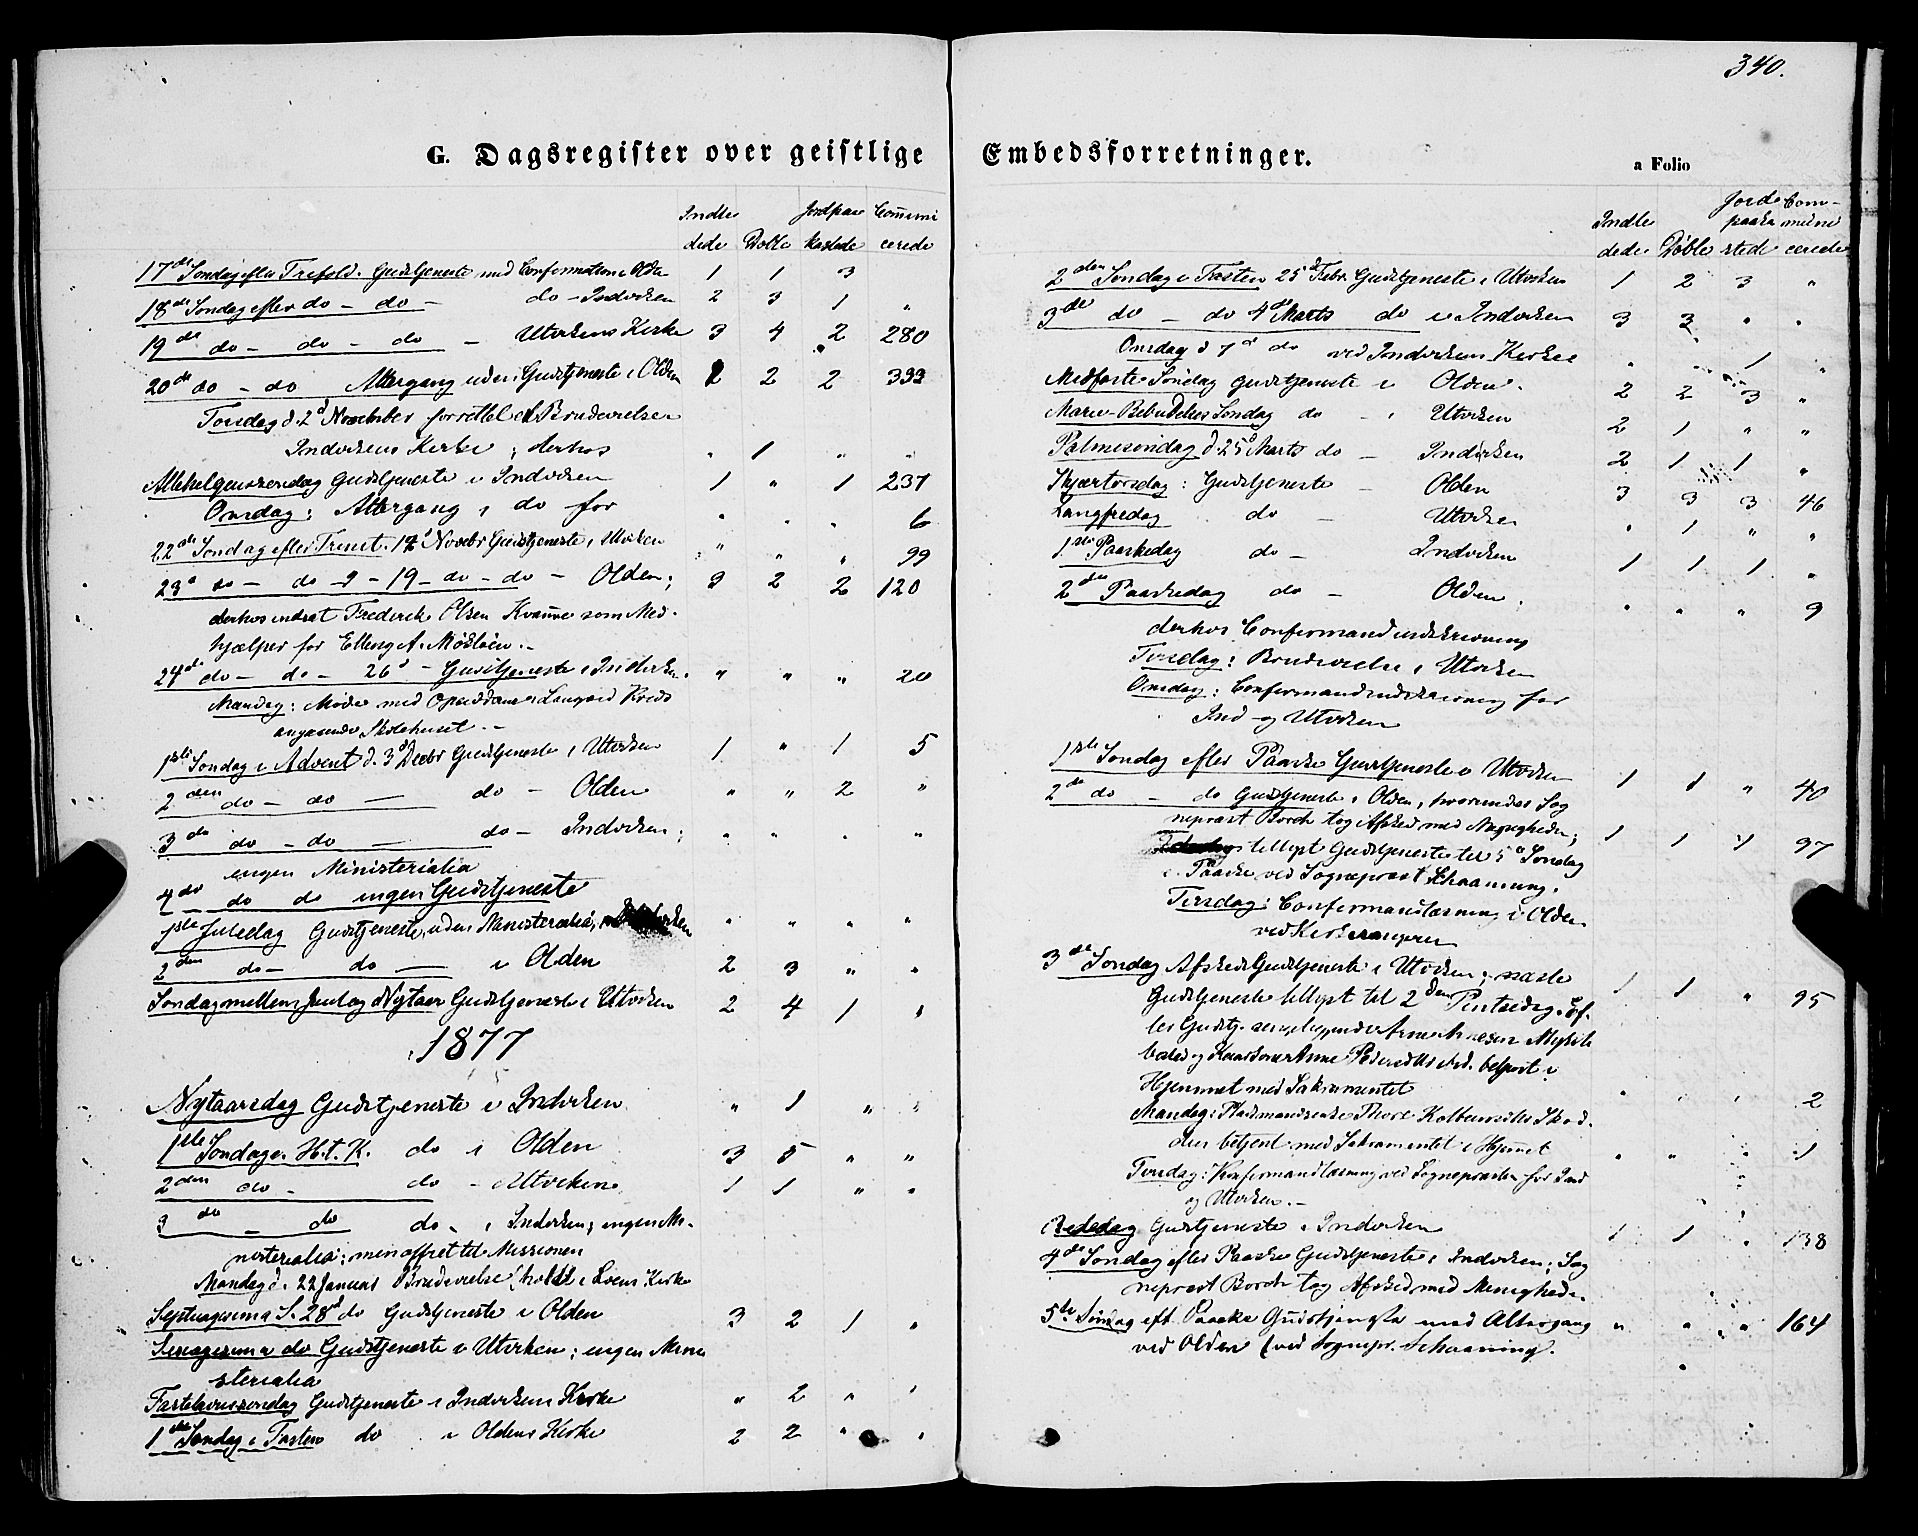 340.
G. Dagsregister over geistlige
Indle Jordpaa Communi
dede Døbte kastede cerede
17de Søndag efter Trefold. Gudstjeneste med Confirmation i Olden 1 1 3
18de Søndag efter do - do - do - Indviken 2 3 1 "
19de do - do - do - Utvikens Kirke 3 4 2 280
20de do - do Altergang uden Gudstjeneste i Olden 2 2 2 333
Torsdag d. 2d November forrettet Brudevielse
Indvikens Kirke; derhos " 1 " "
Allehelgenssøndag Gudstjeneste i Indviken 1 " 1 237
Onsdag: Altergang i do for " " " 6
22de Søndag efter Trinit. Novbr Gudstjeneste i Utviken " " " 99
23d do - do - 19 - do - do - Olden; 3 2 2 120
derhos indsat Frederik Olsen Kvamme som Med-
hjælper for
24de do - do - 26d - Gudstjeneste i Indviken. " " " 20
Mandag: Møde med Kreds
angaaende Skolehuset. -
1ste Søndag i Advent d. 3d Decbr Gudstjeneste i Utviken 1 " 1 5
2den do - do - do - Olden " " 2 "
3de do - do - do - Indviken; " " " "
ingen Ministerialia
4de do do ingen Gudstjeneste
1ste Juledag Gudstjeneste, uden Ministerialia, " " " "
2den do - do - i Olden 2 3 " "
Søndag mellem Juul og Nytaar Gudstjeneste i Utviken 2 4 1 "
1877
Nytaarsdag Gudstjeneste i Indviken " 1 " "
1ste Søndag e. H. t. K. do i Olden 3 5 " "
2den do - do - Utviken 1 1 " "
3de - do do - i Indviken; ingen Mi-
nisterialia; men offret til Missionen
Mandag d. 22 Januar Brudevielse i Loens Kirke
Septuagesima S. 28d do Gudstjeneste i Olden 3 2 1 "
Sexagesima do Gudstjeneste i Utviken; ingen Mini
sterialia
Fastelavnssøndag Gudstjeneste i Indvikens Kirke " 2 " "
1ste Søndag i Fasten do i Oldens Kirke 2 2 " "
Embedsforretninger.
a Folio
Indle Jords Com-
paaka muni
dede Døbte stede cerede
2den Søndag i Fasten 25d Febr Gudstjeneste i Utviken 1 2 3 "
3die do - do 4d Marts do i Indviken 3 3 " "
Onsdag d 7d do ved Indvikens Kirke " " 1 "
Midfaste Søndag Gudstjeneste i Olden. 2 2 3 "
Mariæ-Bebudelses Søndag do - i Utviken 2 1 " "
Palmesøndag d. 25d Marts do - Indviken 2 1 1 "
Skjærtorsdag: Gudstjeneste - Olden 3 3 3 46
Langfredag do - Utviken " 1 " "
1ste Paaskedag do - Indviken 1 1 1 "
2den Paaskedag do - Olden; " " " 9
derhos Confirmandindskrivning
Tirsdag: Brudevielse i Utviken
Onsdag: Confirmandindskrivning for
Ind- og Utviken
1ste Søndag efter Paaske Gudstjeneste i Utviken 1 1 " 40
2de do - do Gudstjeneste i Olden, hvorunder Sog
nepræst Borch tog Afsked med Menigheden; 1 1 1 97
tillyst Gudstjeneste til 5d Søndag
e. Paaske ved Sognepræst Schaanning.
Tirsdag: Confirmandlæsning i Olden
ved Kirkesangeren
3de Søndag Afskeds Gudstjeneste i Utviken; næste 1 1 " 95
Gudstjeneste tillyst til 2den Pintsedag. Ef-
ter Gudstj.
betjent i
Hjemmet med Sakramentet " " " 2
Mandag:
betjent med Sakramentet i Hjemmet " " " 1
Tirsdag: Konfirmandlæsning ved Sognepræsten for Ind
og Utviken. -
Bededag Gudstjeneste i Indviken 1 1 " 138
4de Søndag efter Paaske Gudstjeneste i Indviken; Sog
nepræst Borch tog Afsked med Menigheden
5te Søndag eft. Paaske Gudstjeneste med Altergang " " " 164
ved Olden (ved Sognepr. Schaanning.